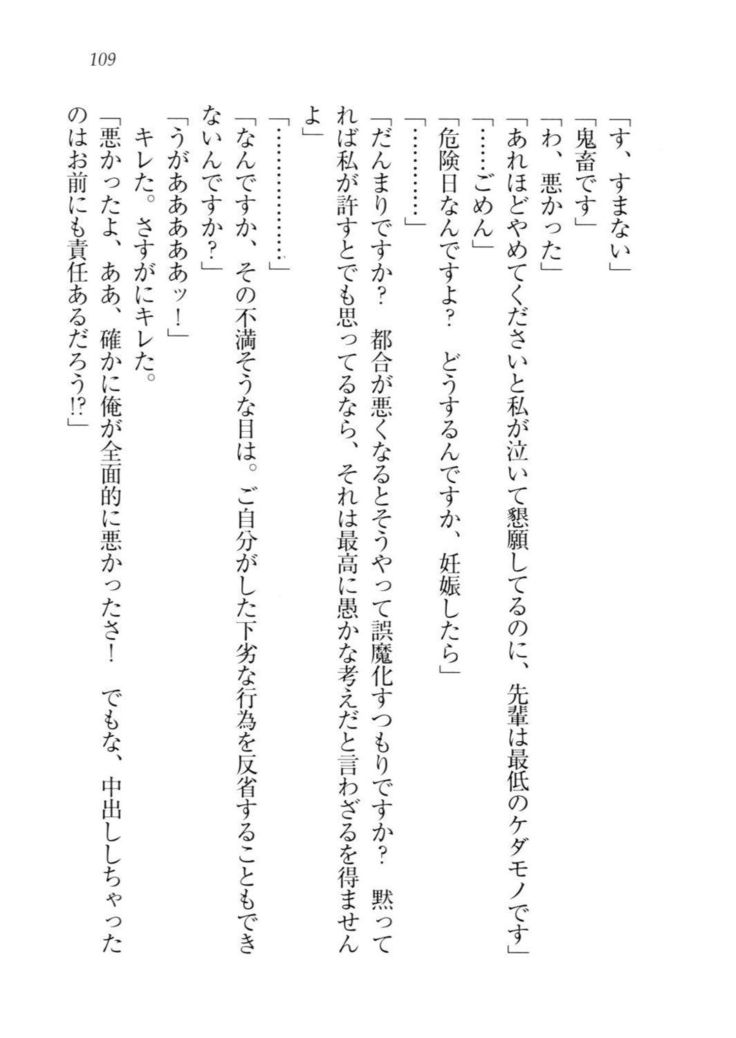 109
「す、すまない」
「鬼畜です」
「わ、悪かった」
「あれほどやめてくださいと私が泣いて懇願してるのに、先輩は最低のケダモノです」
「……ごめん」
「危険日なんですよ？　どうするんですか、妊娠したら」
「…………」
「だんまりですか？　都合が悪くなるとそうやって誤魔化すつもりですか？　黙って
れば私が許すとでも思ってるなら、それは最高に愚かな考えだと言わざるを得ません
よ」
「………………」
「なんですか、その不満そうな目は。ご自分がした下劣な行為を反省することもでき
ないんですか？」
「うがあああああッ！」
キレた。さすがにキレた。
「悪かったよ、ああ、確かに俺が全面的に悪かったさ！　でもな、中出ししちゃった
のはお前にも責任あるだろう!?」